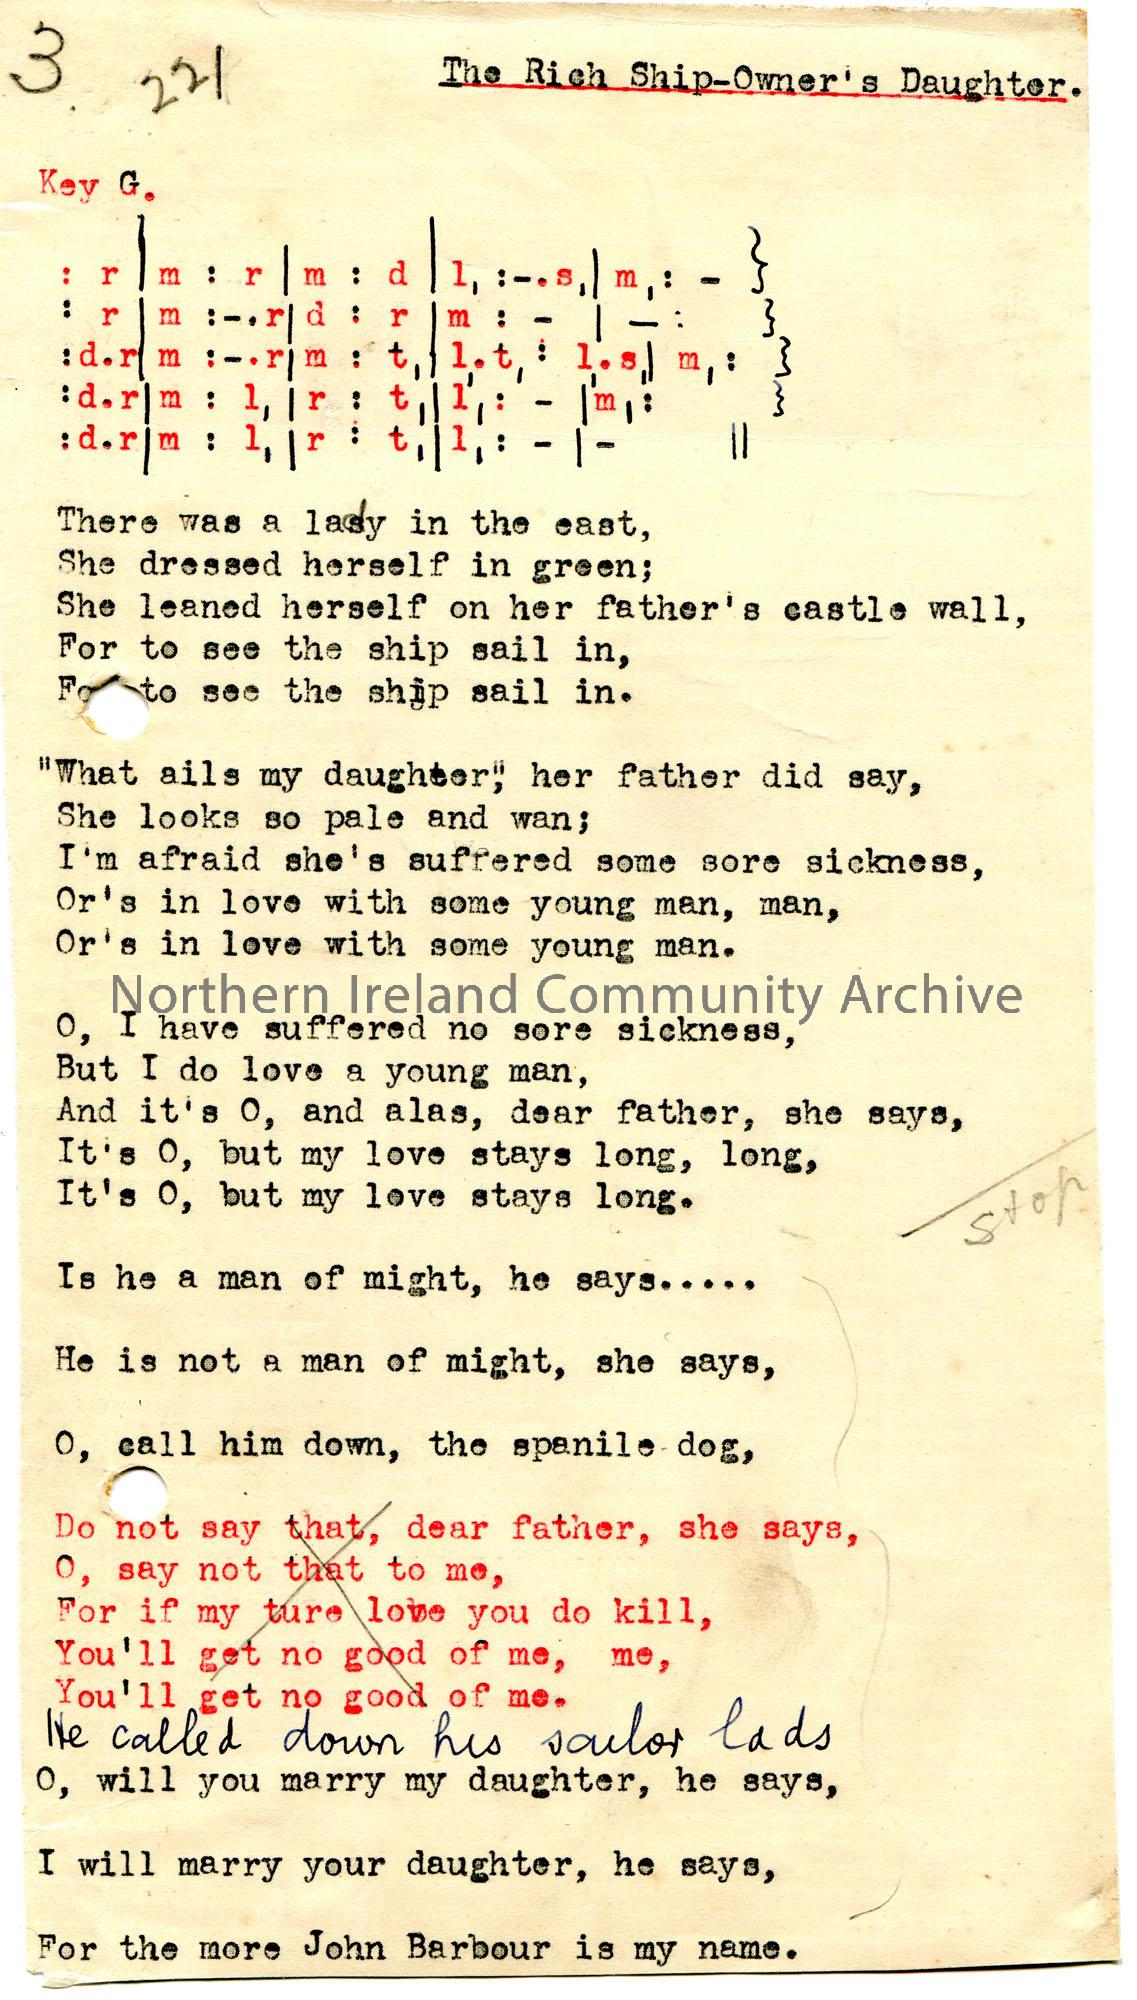 3. 221
The Rich Ship-Owner's Daughter.
Key G.
: r | m : r | m : d | l, :-.s,| m, : - }
: r | m :-.r| d : r | m : - | - : }
:d.r| m :-.r| m : t,| l,.t, : l,.s,| m, : }
:d.r| m : l, | r : t,| l, : - |m, : }
:d.r| m : l, | r : t,| l, : - | - ||
There was a lady in the east,
She dressed herself in green;
She leaned herself on her father's castle wall,
For to see the ship sail in,
For to see the ship sail in.
"What ails my daughter," her father did say,
She looks so pale and wan;
I'm afraid she's suffered some sore sickness,
Or's in love with some young man, man,
Or's in love with some young man.
Northern Ireland Community Archive
O, I have suffered no sore sickness,
But I do love a young man,
And it's O, and alas, dear father, she says,
It's O, but my love stays long, long,
It's O, but my love stays long.
stop
Is he a man of might, he says.....
He is not a man of might, she says,
O, call him down, the spanile dog,
Do not say that, dear father, she says,
O, say not that to me,
For if my ture love you do kill,
You'll get no good of me, me,
You'll get no good of me.
He called down his sailor lads
O, will you marry my daughter, he says,
I will marry your daughter, he says,
For the more John Barbour is my name.